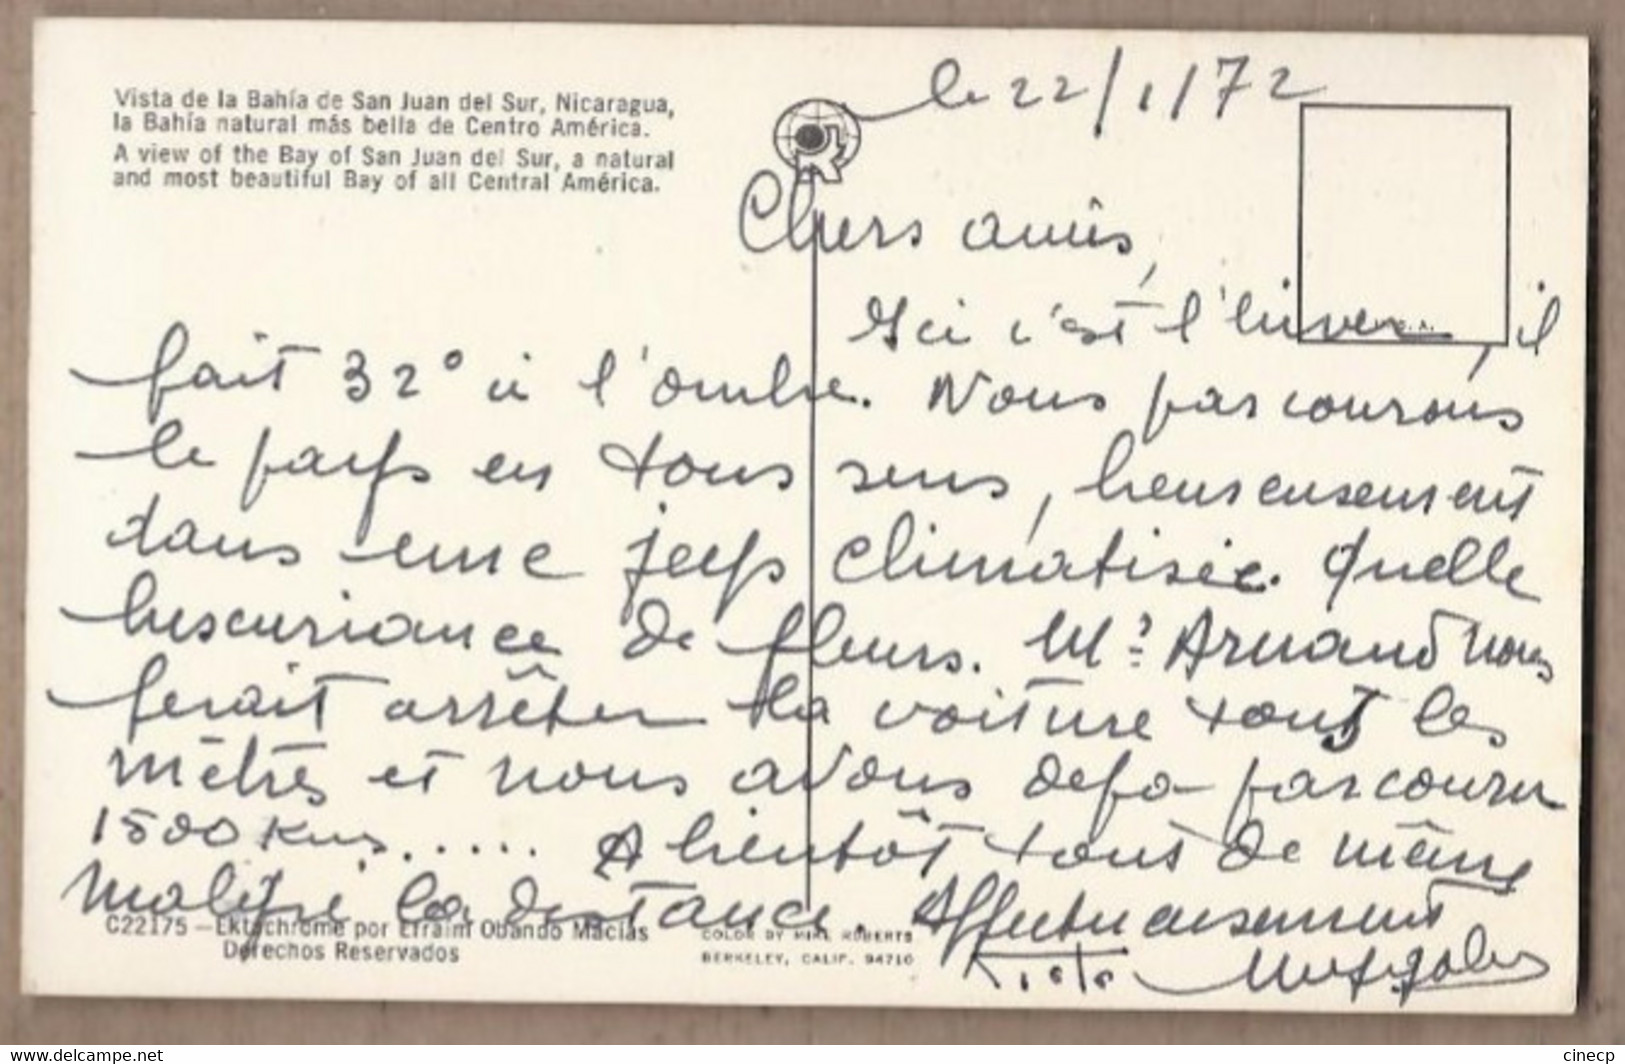 Vista de la Bahía de San Juan del Sur, Nicaragua,
la Bahía natural más bella de Centro América.
A view of the Bay of San Juan del Sur, a natural
and most beautiful Bay of all Central América.
le 22/1/72
Chers amis,
Ici c'est l'hiver, il
fait 32° à l'ombre. Nous parcourons
le pays en tous sens, heureusement
dans une jeep climatisée. Quelle
luxuriance de fleurs. Mr Arnaud nous
ferait arrêter la voiture tous les
mètres et nous avons déjà parcouru
1500 kms..... A bientôt tout de même
malgré la distance. Affectueusement
C22175 — Ektachrome por Efraim Obando Macías
Derechos Reservados
COLOR BY MIKE ROBERTS
BERKELEY, CALIF. 94710
www.delcampe.net
cinecp